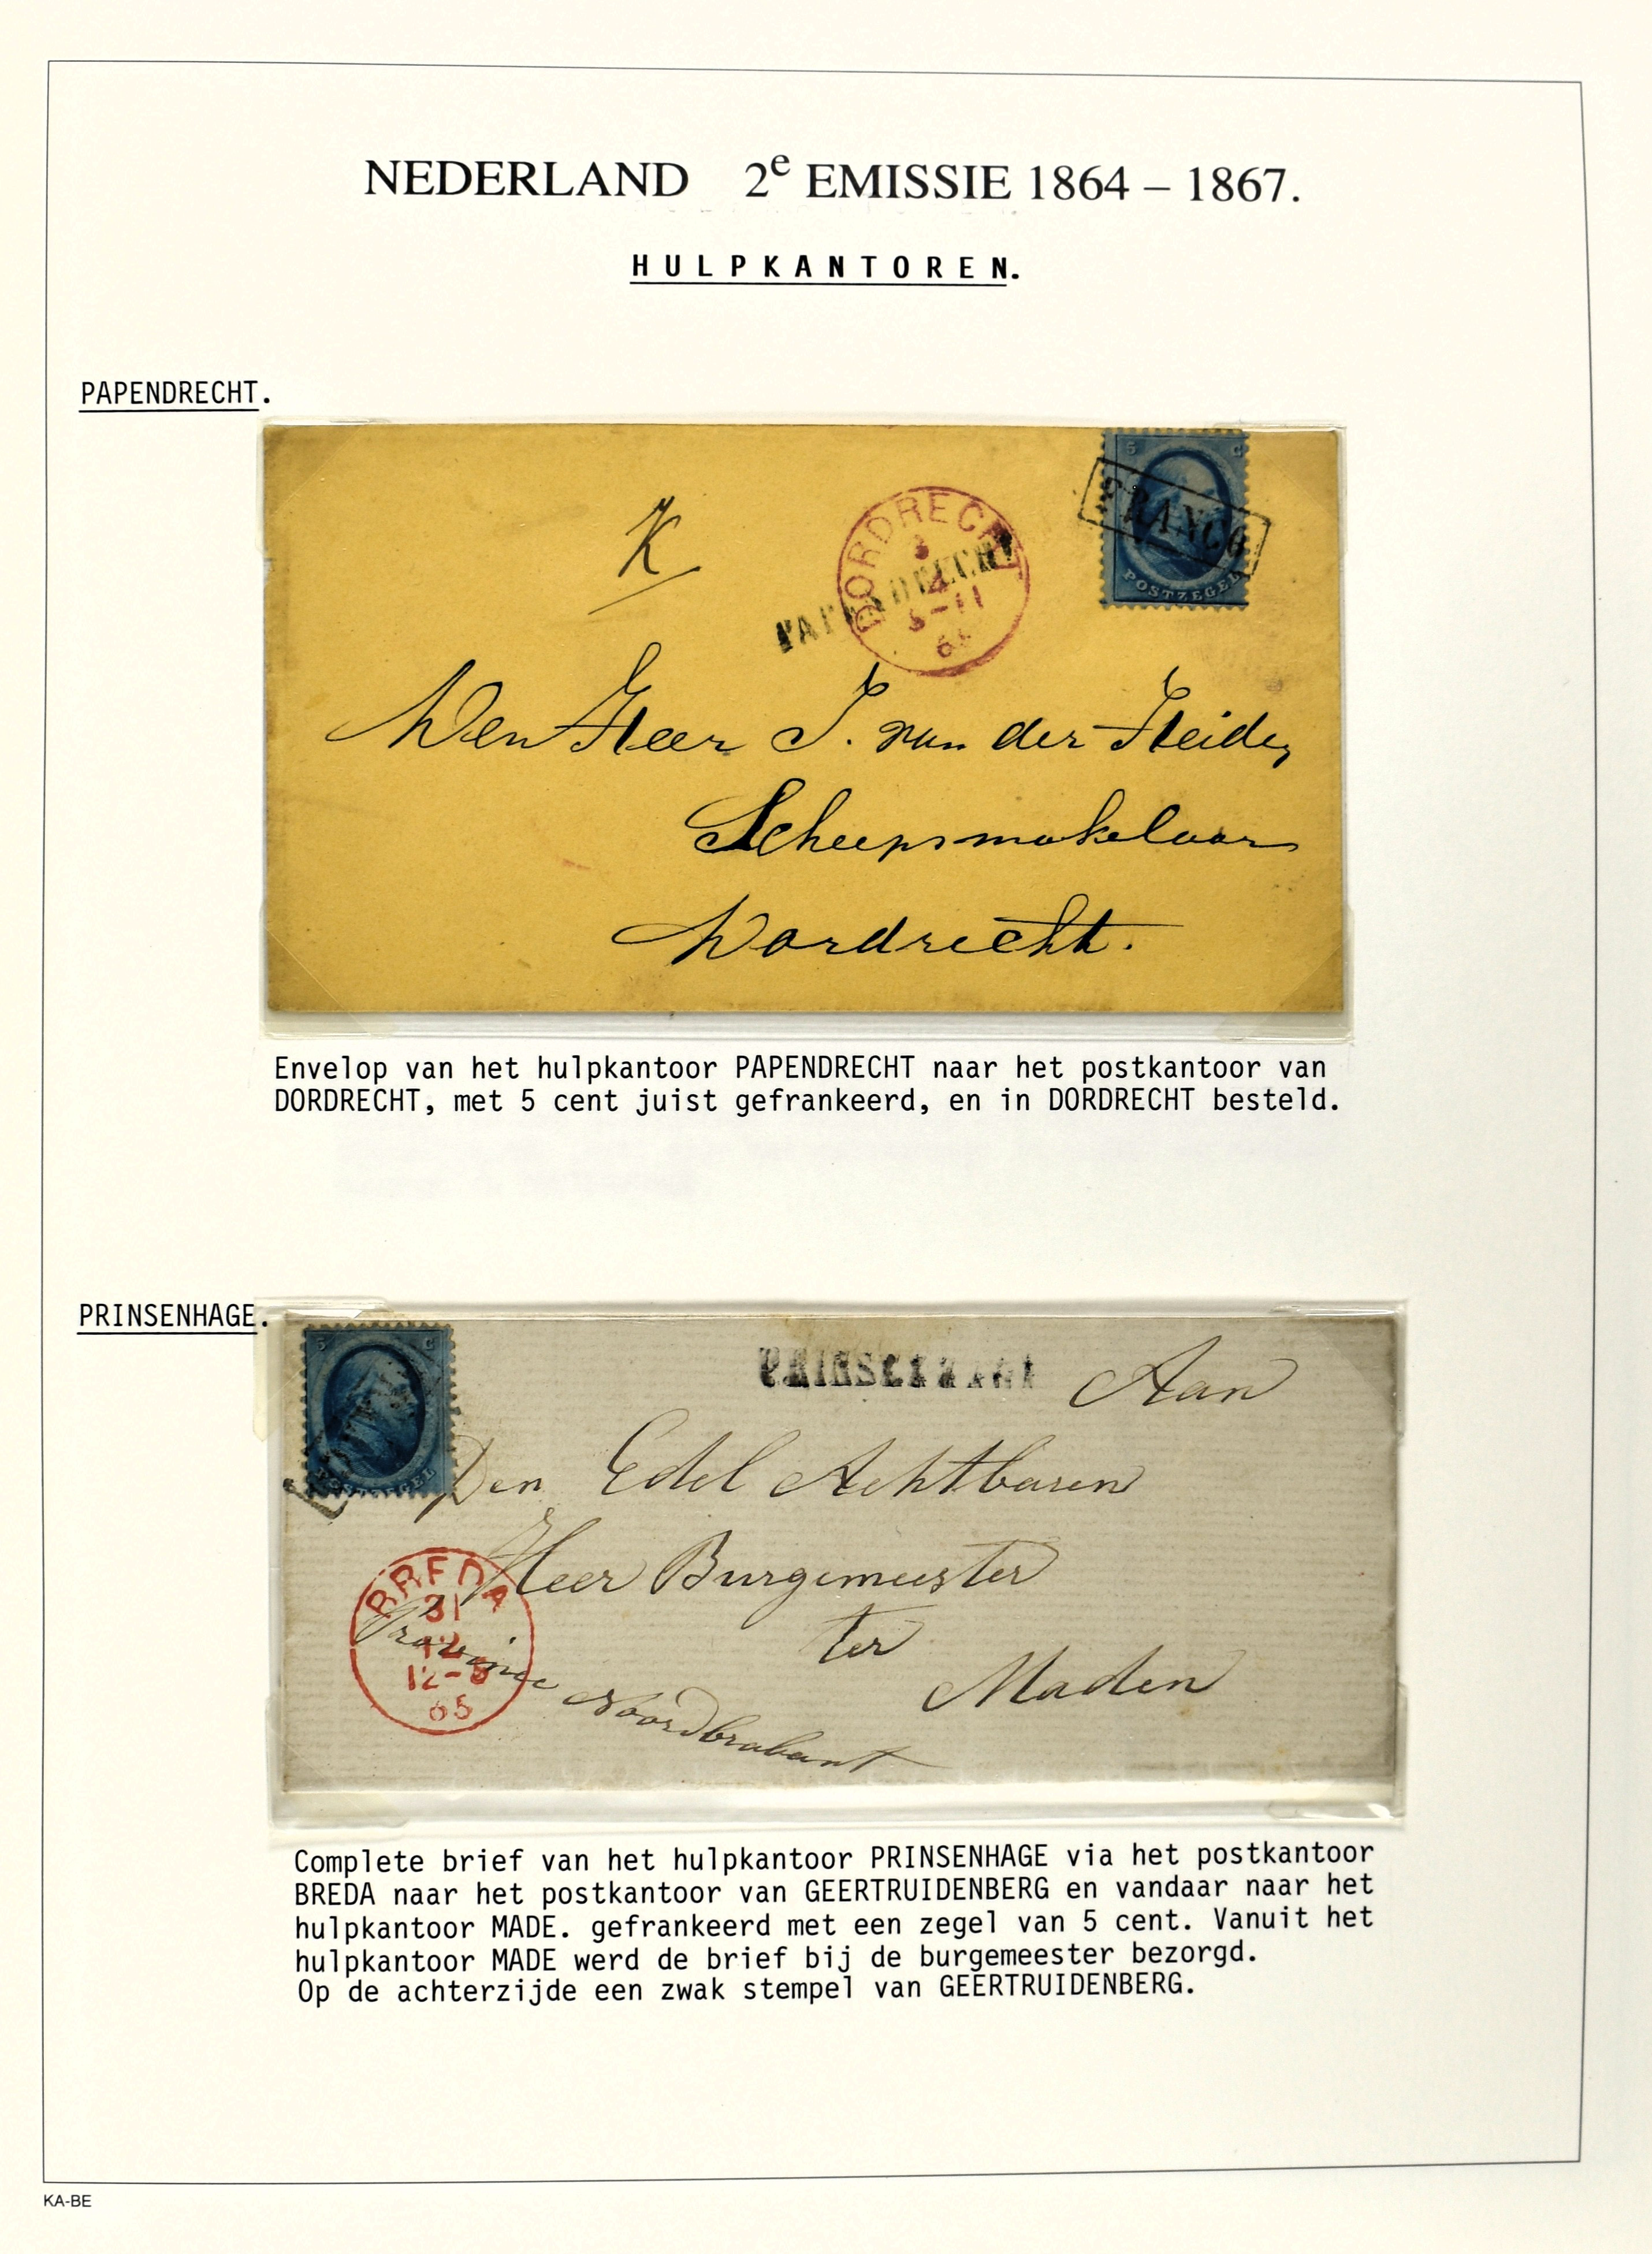 NEDERLAND 2e EMISSIE 1864 – 1867.
HULPKANTOREN.
PAPENDRECHT.
5 C
FRANCO
POSTZEGEL
K
DORDRECHT
3
4
PAPENDRECHT
Den Heer J. van der Heide,
Scheepsmakelaar
Dordrecht.
Envelop van het hulpkantoor PAPENDRECHT naar het postkantoor van
DORDRECHT, met 5 cent juist gefrankeerd, en in DORDRECHT besteld.
PRINSENHAGE.
5 C
POSTZEGEL
PRINSENHAGE
Aan
Den Edel Achtbaren
Heer Burgemeester
ter
Maden
Provincie Noordbrabant
BREDA
31
12
12-8
65
Complete brief van het hulpkantoor PRINSENHAGE via het postkantoor
BREDA naar het postkantoor van GEERTRUIDENBERG en vandaar naar het
hulpkantoor MADE. gefrankeerd met een zegel van 5 cent. Vanuit het
hulpkantoor MADE werd de brief bij de burgemeester bezorgd.
Op de achterzijde een zwak stempel van GEERTRUIDENBERG.
KA-BE